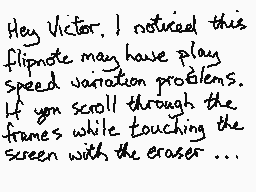 Hey Victor, I noticed this
flipnote may have play
speed variation problems.
If you scroll through the
frames while touching the
screen with the eraser ...